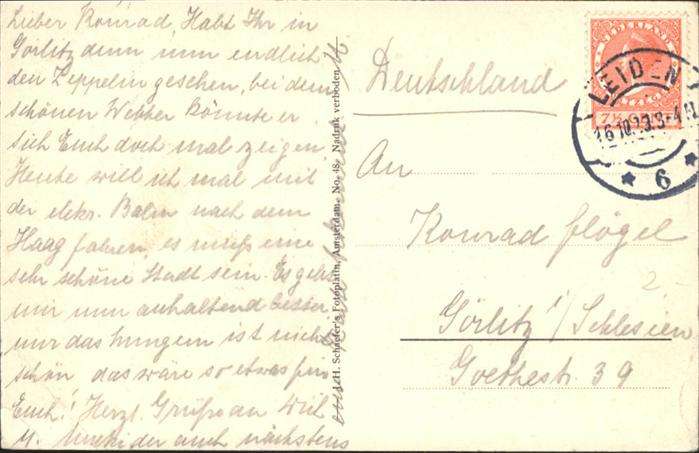 Lieber Konrad, Habt Ihr in
Görlitz denn nun endlich
den Zeppelin gesehen, bei dem
schönen Wetter könnte er
sich Euch doch mal zeigen
Heute will ich mal mit
der elektr. Bahn nach dem
Haag fahren, es muß eine
sehr schöne Stadt sein. Es geht
mir nun anhaltend besser
nur das hungern ist nicht
schön das wäre so etwas für
Euch! Herzl. Grüße an
u. auch nächstens
H. Schaefer's Fotoplatin, Amsterdam. No. 48. Nadruk verboden
Deutschland
An
Konrad Flögel
Görlitz / Schlesien
Goethestr. 39
2
NEDERLAND
7½
LEIDEN
6